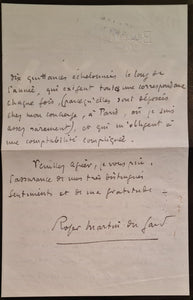 dix quittances échelonnées le long de
l'année, qui exigent toute une correspondance
chaque fois, (parce qu'elles sont déposées
chez mon concierge, à Paris, où je suis
assez rarement), et qui m'obligent à
une comptabilité compliquée.
Veuillez agréer, je vous prie,
l'assurance de mes très distingués
sentiments et de ma gratitude.
Roger Martin du Gard